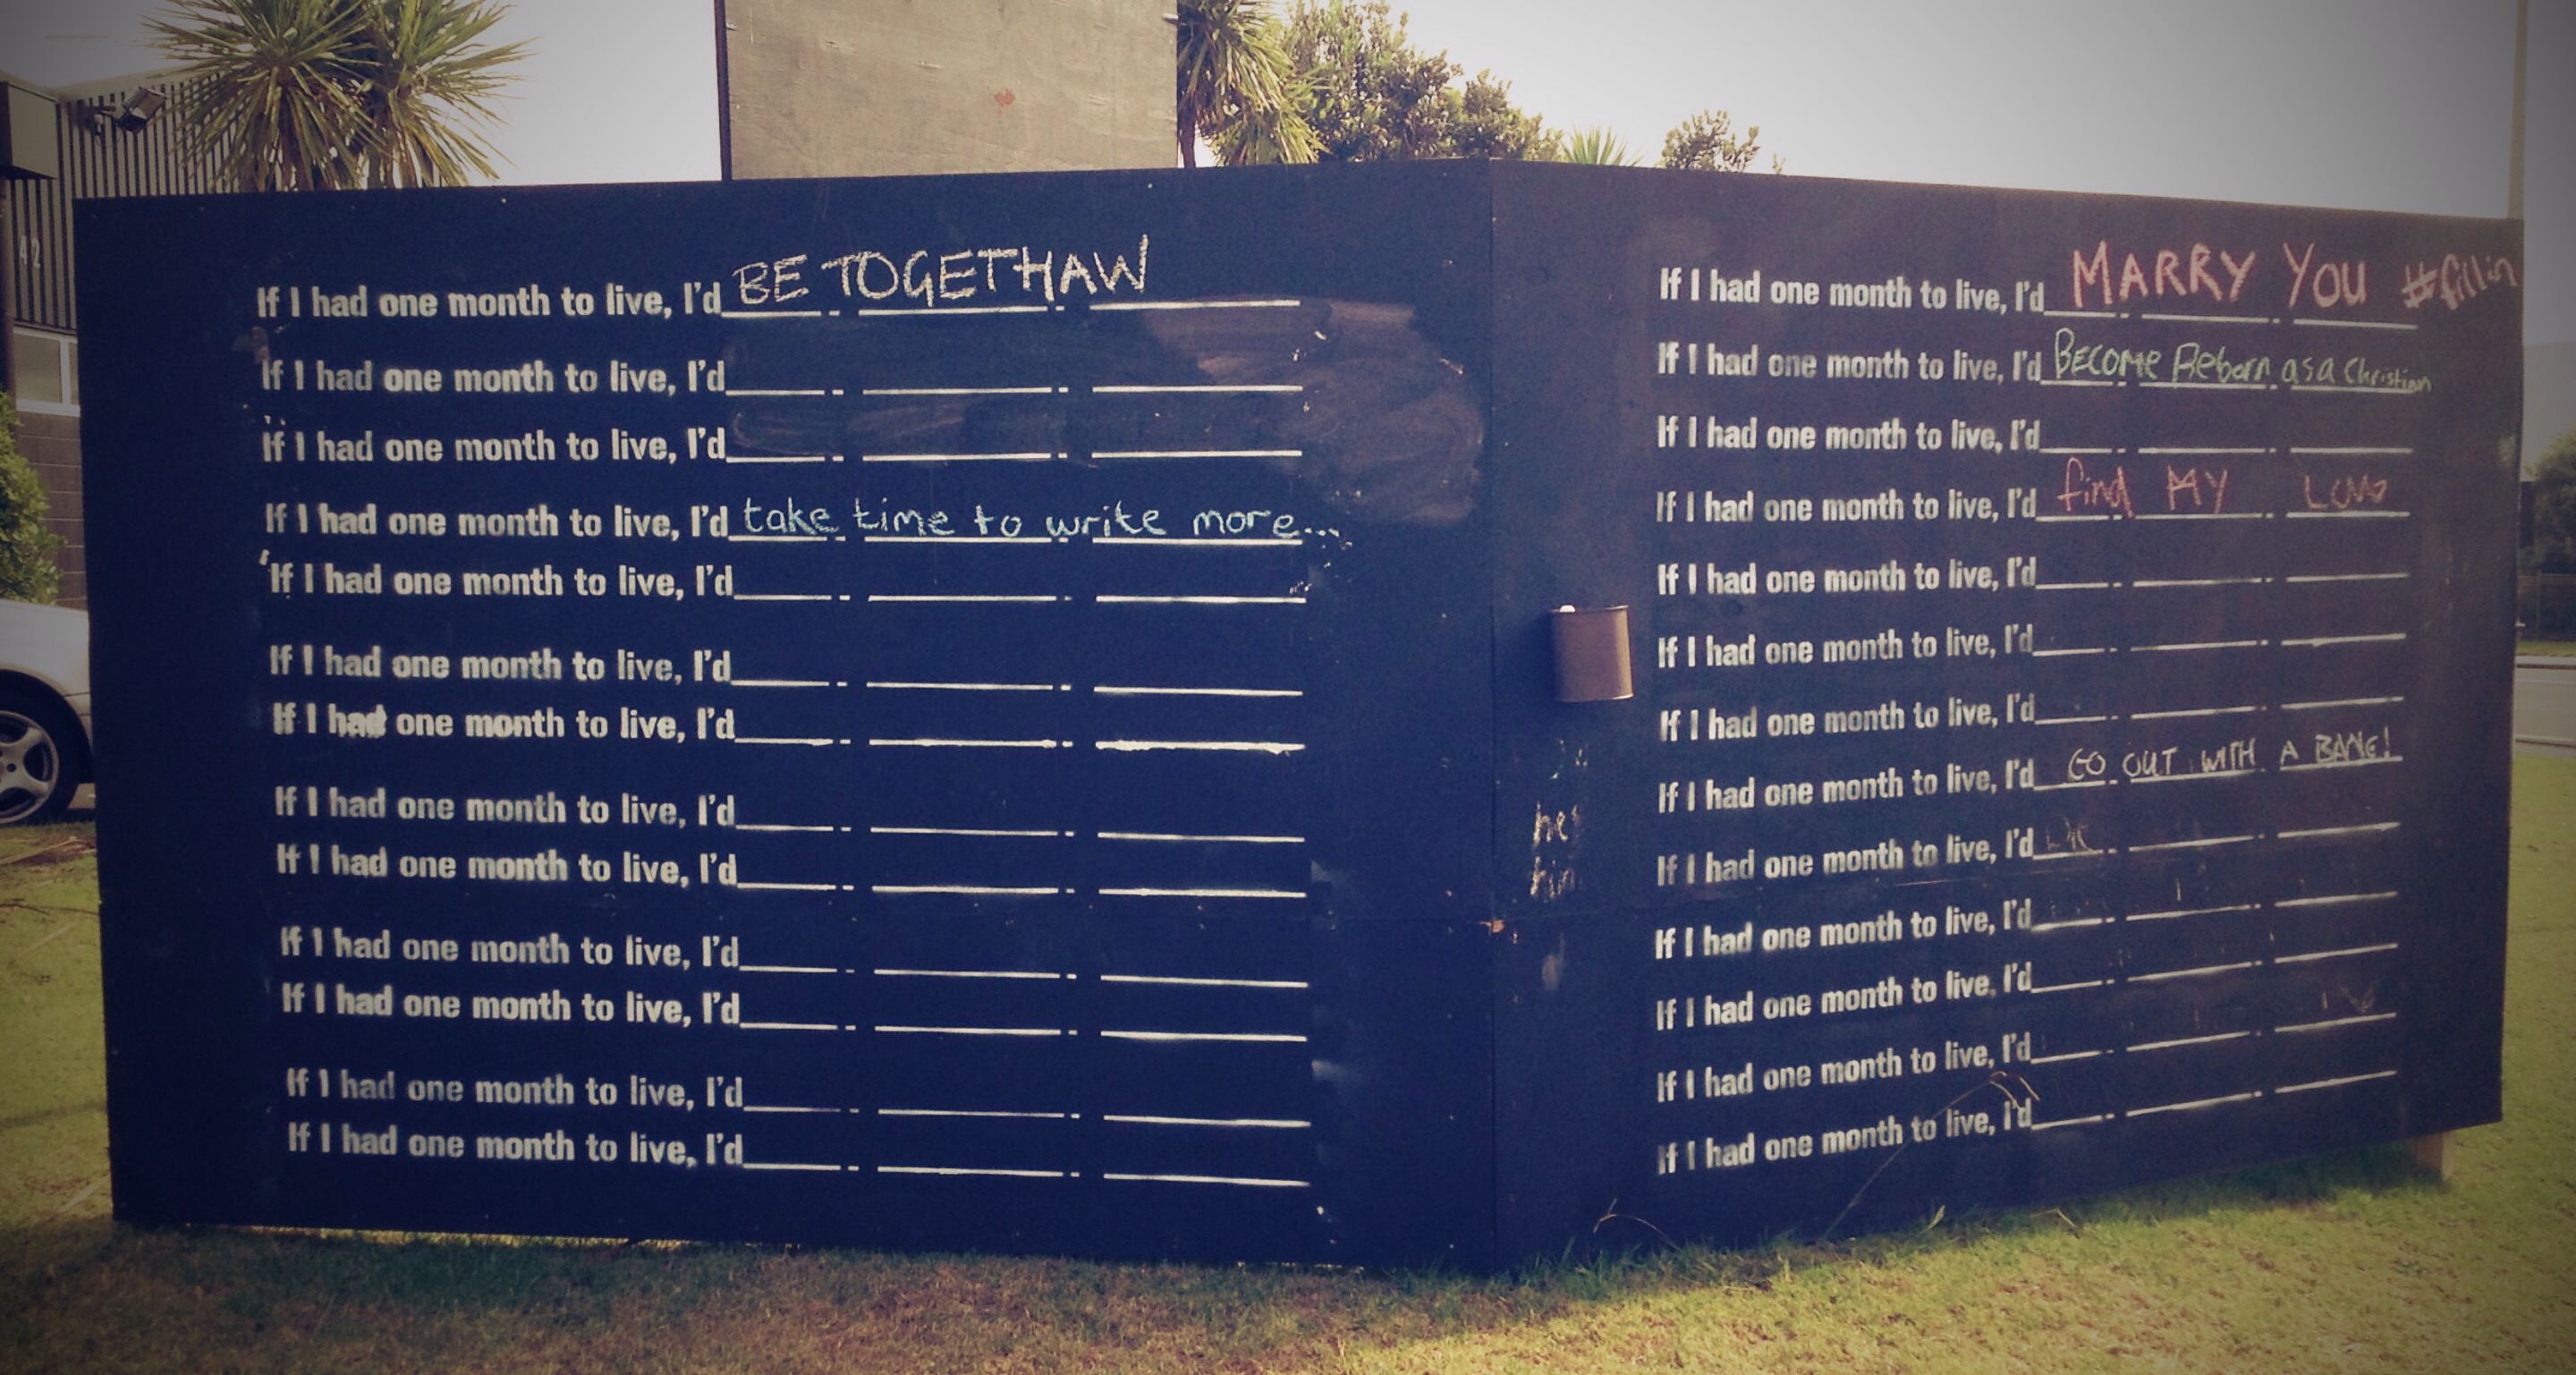 If I had one month to live, I'd BE TOGETHAW
If I had one month to live, I'd
If I had one month to live, I'd
If I had one month to live, I'd take time to write more...
If I had one month to live, I'd
If I had one month to live, I'd
If I had one month to live, I'd
If I had one month to live, I'd
If I had one month to live, I'd
If I had one month to live, I'd
If I had one month to live, I'd
If I had one month to live, I'd
If I had one month to live, I'd
If I had one month to live, I'd MARRY YOU #fillin
If I had one month to live, I'd BECOME Reborn as a Christian
If I had one month to live, I'd
If I had one month to live, I'd find MY Love
If I had one month to live, I'd
If I had one month to live, I'd
If I had one month to live, I'd
If I had one month to live, I'd GO OUT WITH A BANG!
If I had one month to live, I'd
If I had one month to live, I'd
If I had one month to live, I'd
If I had one month to live, I'd
If I had one month to live, I'd